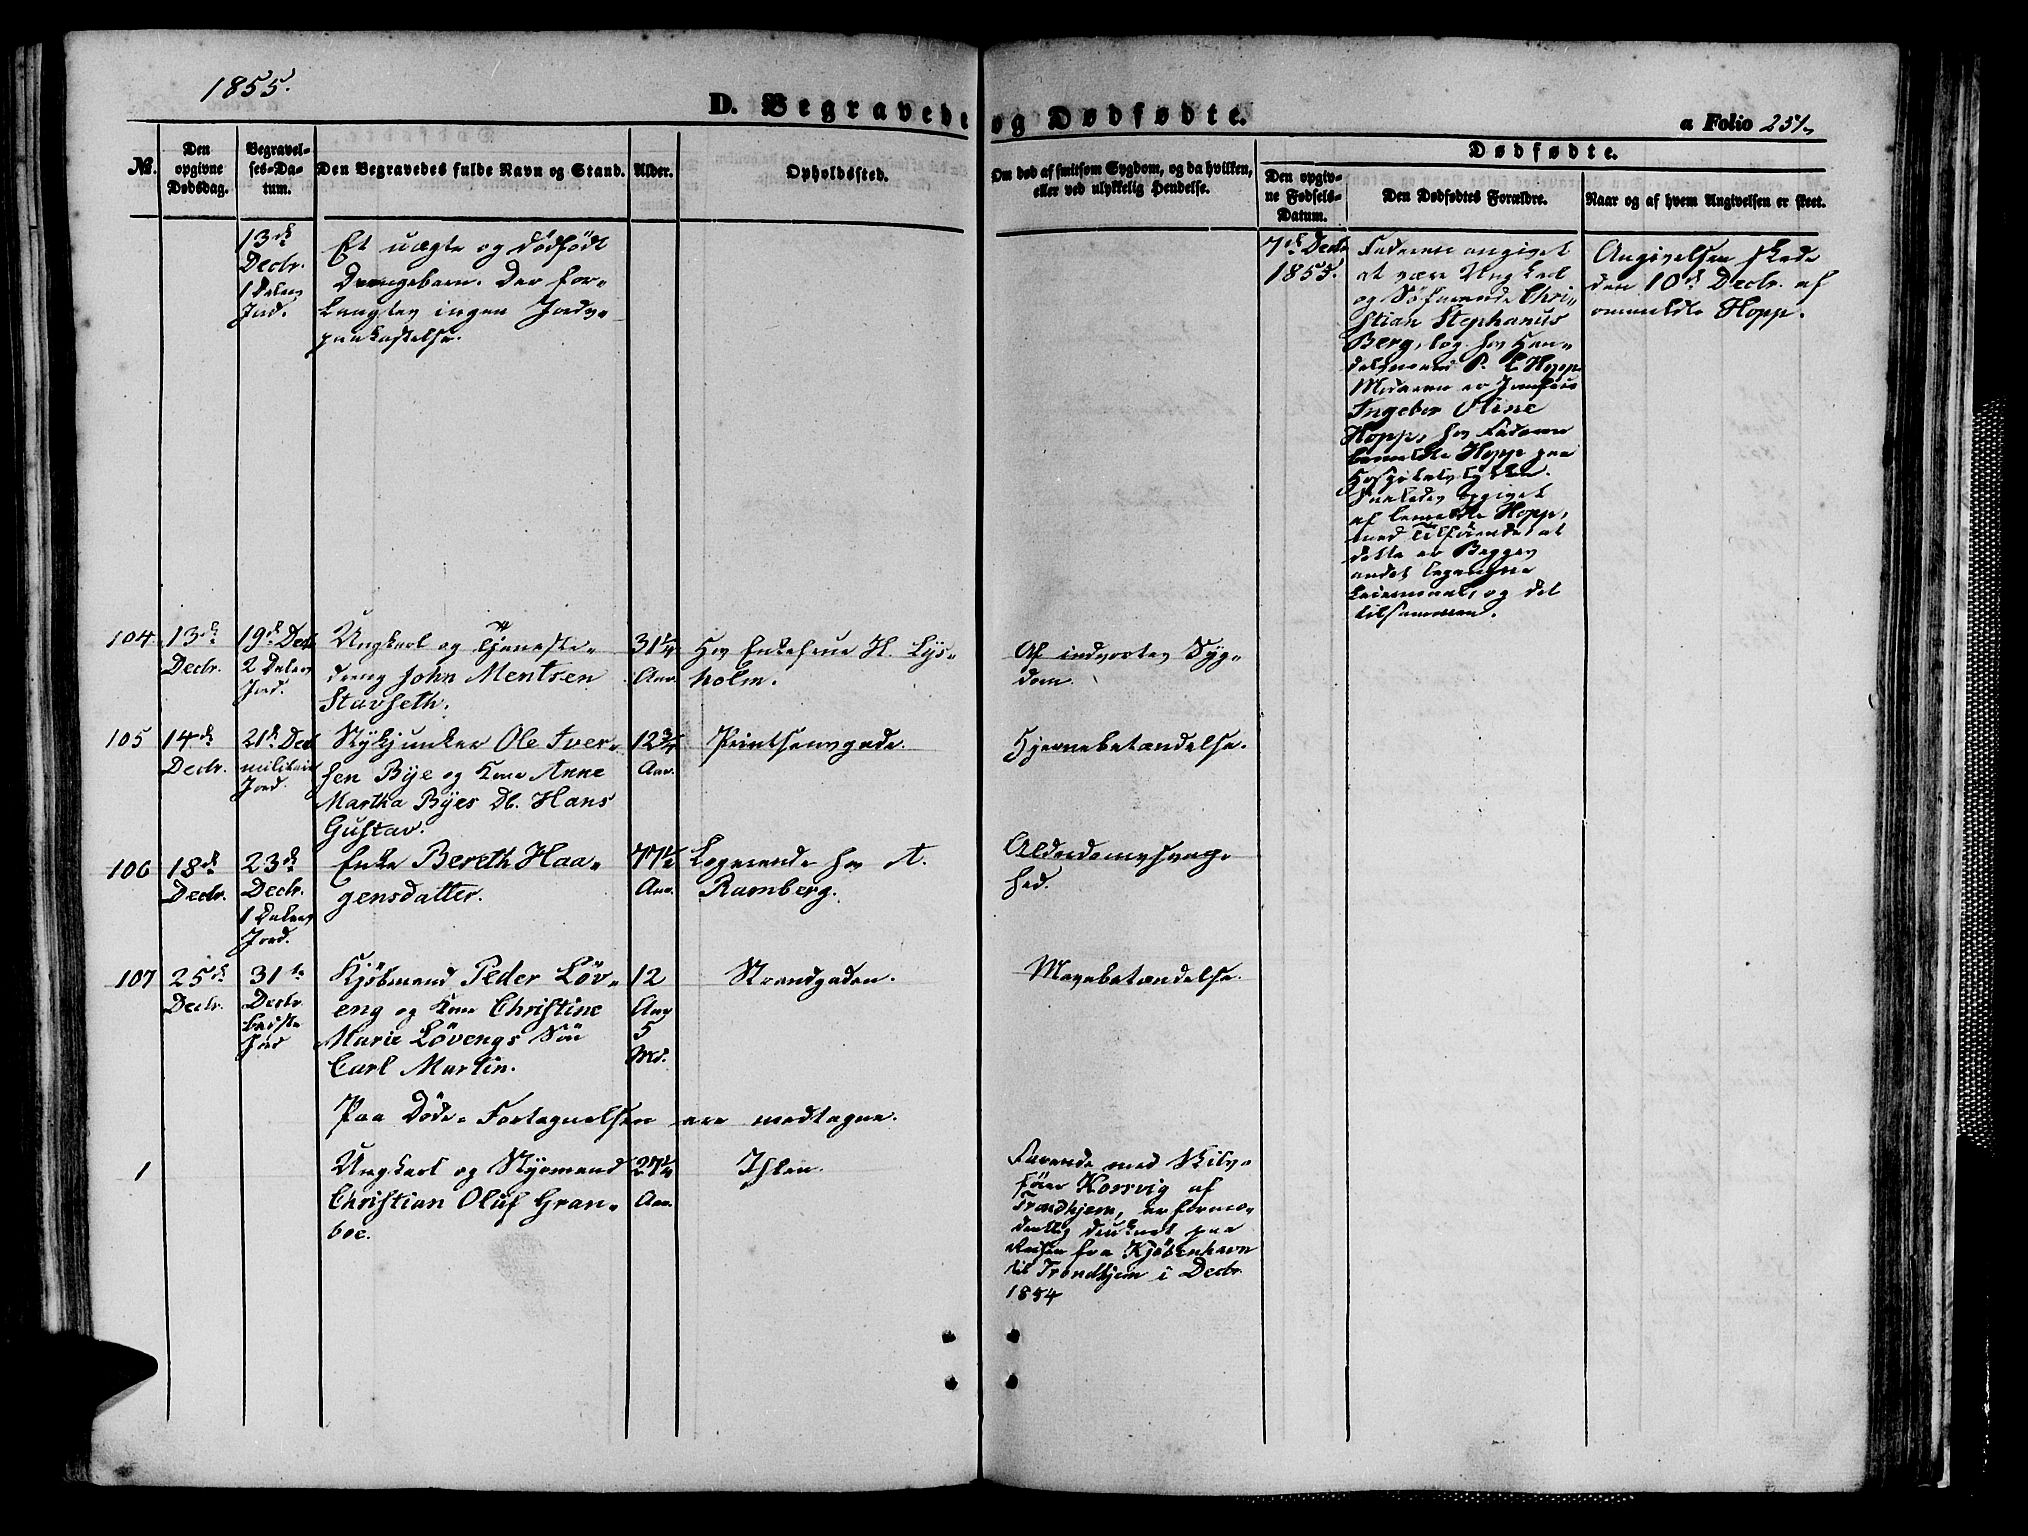 1855.
D. Begravede og Dødfødte.
a Folio 251,
No.
Den opgivne Dødsdag.
Begravelses-Datum.
Den Begravedes fulde Navn og Stand.
Alder.
Opholdssted.
Om død af smitsom Sygdom, og da hvilken,
eller ved ulykkelig Hendelse.
Dødfødte.
Den opgivne Fødsels-Datum.
Den Dødfødtes Forældre.
Naar og af hvem Angivelsen er skeet.
13de
Decbr.
1 Dalers
Jord.
Et uægte og dödfödt
Drengebarn. Der for-
langtes ingen Jords-
paakastelse.
7de Decbr
1855.
Faderen angivet
at være Ungkarl
og Söfarende Chri-
stian Stephanus
Berg, log. hos Han-
delsmand P. L Hopp
Moderen er
Ingebor Oline
Hopp, hos Faderen
bemeldte Hopp paa
opgivet
af bemeldte Hopp,
med Tilföiende at
dette er Begges
andet
Leiermaal, og det
tilsammen.
Angivelsen skede
den 10de Decbr. af
ommeldte Hopp.
104
13de
Decbr.
19de Decbr
2 Dalers
Jord.
Ungkarl og Tjeneste-
dreng John Mentsen
Stavseth.
31 1/4
Aar.
Hos Enkefrue H. Lys-
holm.
Af indvortes Syg-
dom.
105
14de
Decbr.
21de Decbr
militair
Jord.
Stykjunker Ole Iver-
sen Bye og Kone Anne
Martha Byes Db. Hans
Gustav.
12 3/4
Aar.
Printsensgade.
Hjernebetændelse.
106
18de
Decbr.
23de
Decbr.
1 Dalers
Jord.
Enke Bereth Haa-
gensdatter.
77 1/2
Aar.
Logerende hos A.
Ramberg.
Alderdomssvag-
hed.
107
25de
Decbr.
31te
Decbr
bedste
Jord
Kjöbmand Peder Löv-
eng og Kone Christine
Marie Lövengs Sön
Carl Martin.
12
Aar
5
Md.
Strandgaden.
Mavebetændelse.
Paa Döde-Fortegnelsen ere medtagne.
1
Ungkarl og Styrmand
Christian Oluf Gran-
boe.
27 1/4
Aar.
Ihlen.
Farende med Skibs-
förer Korsvig af
Trondhjem, er formo-
dentlig druknet paa
Reisen fra Kjöbenhavn
til Trondhjem i Decbr.
1854